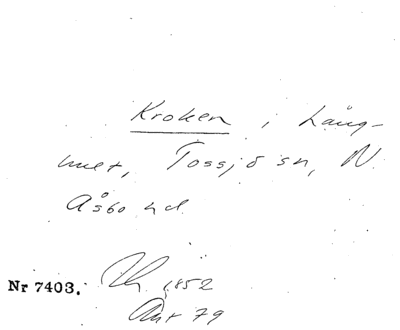 Kroken i Lång-
huet, Tossjö sn, N.
Åsbo hd.
Nr 7403. 1852
Ant 79